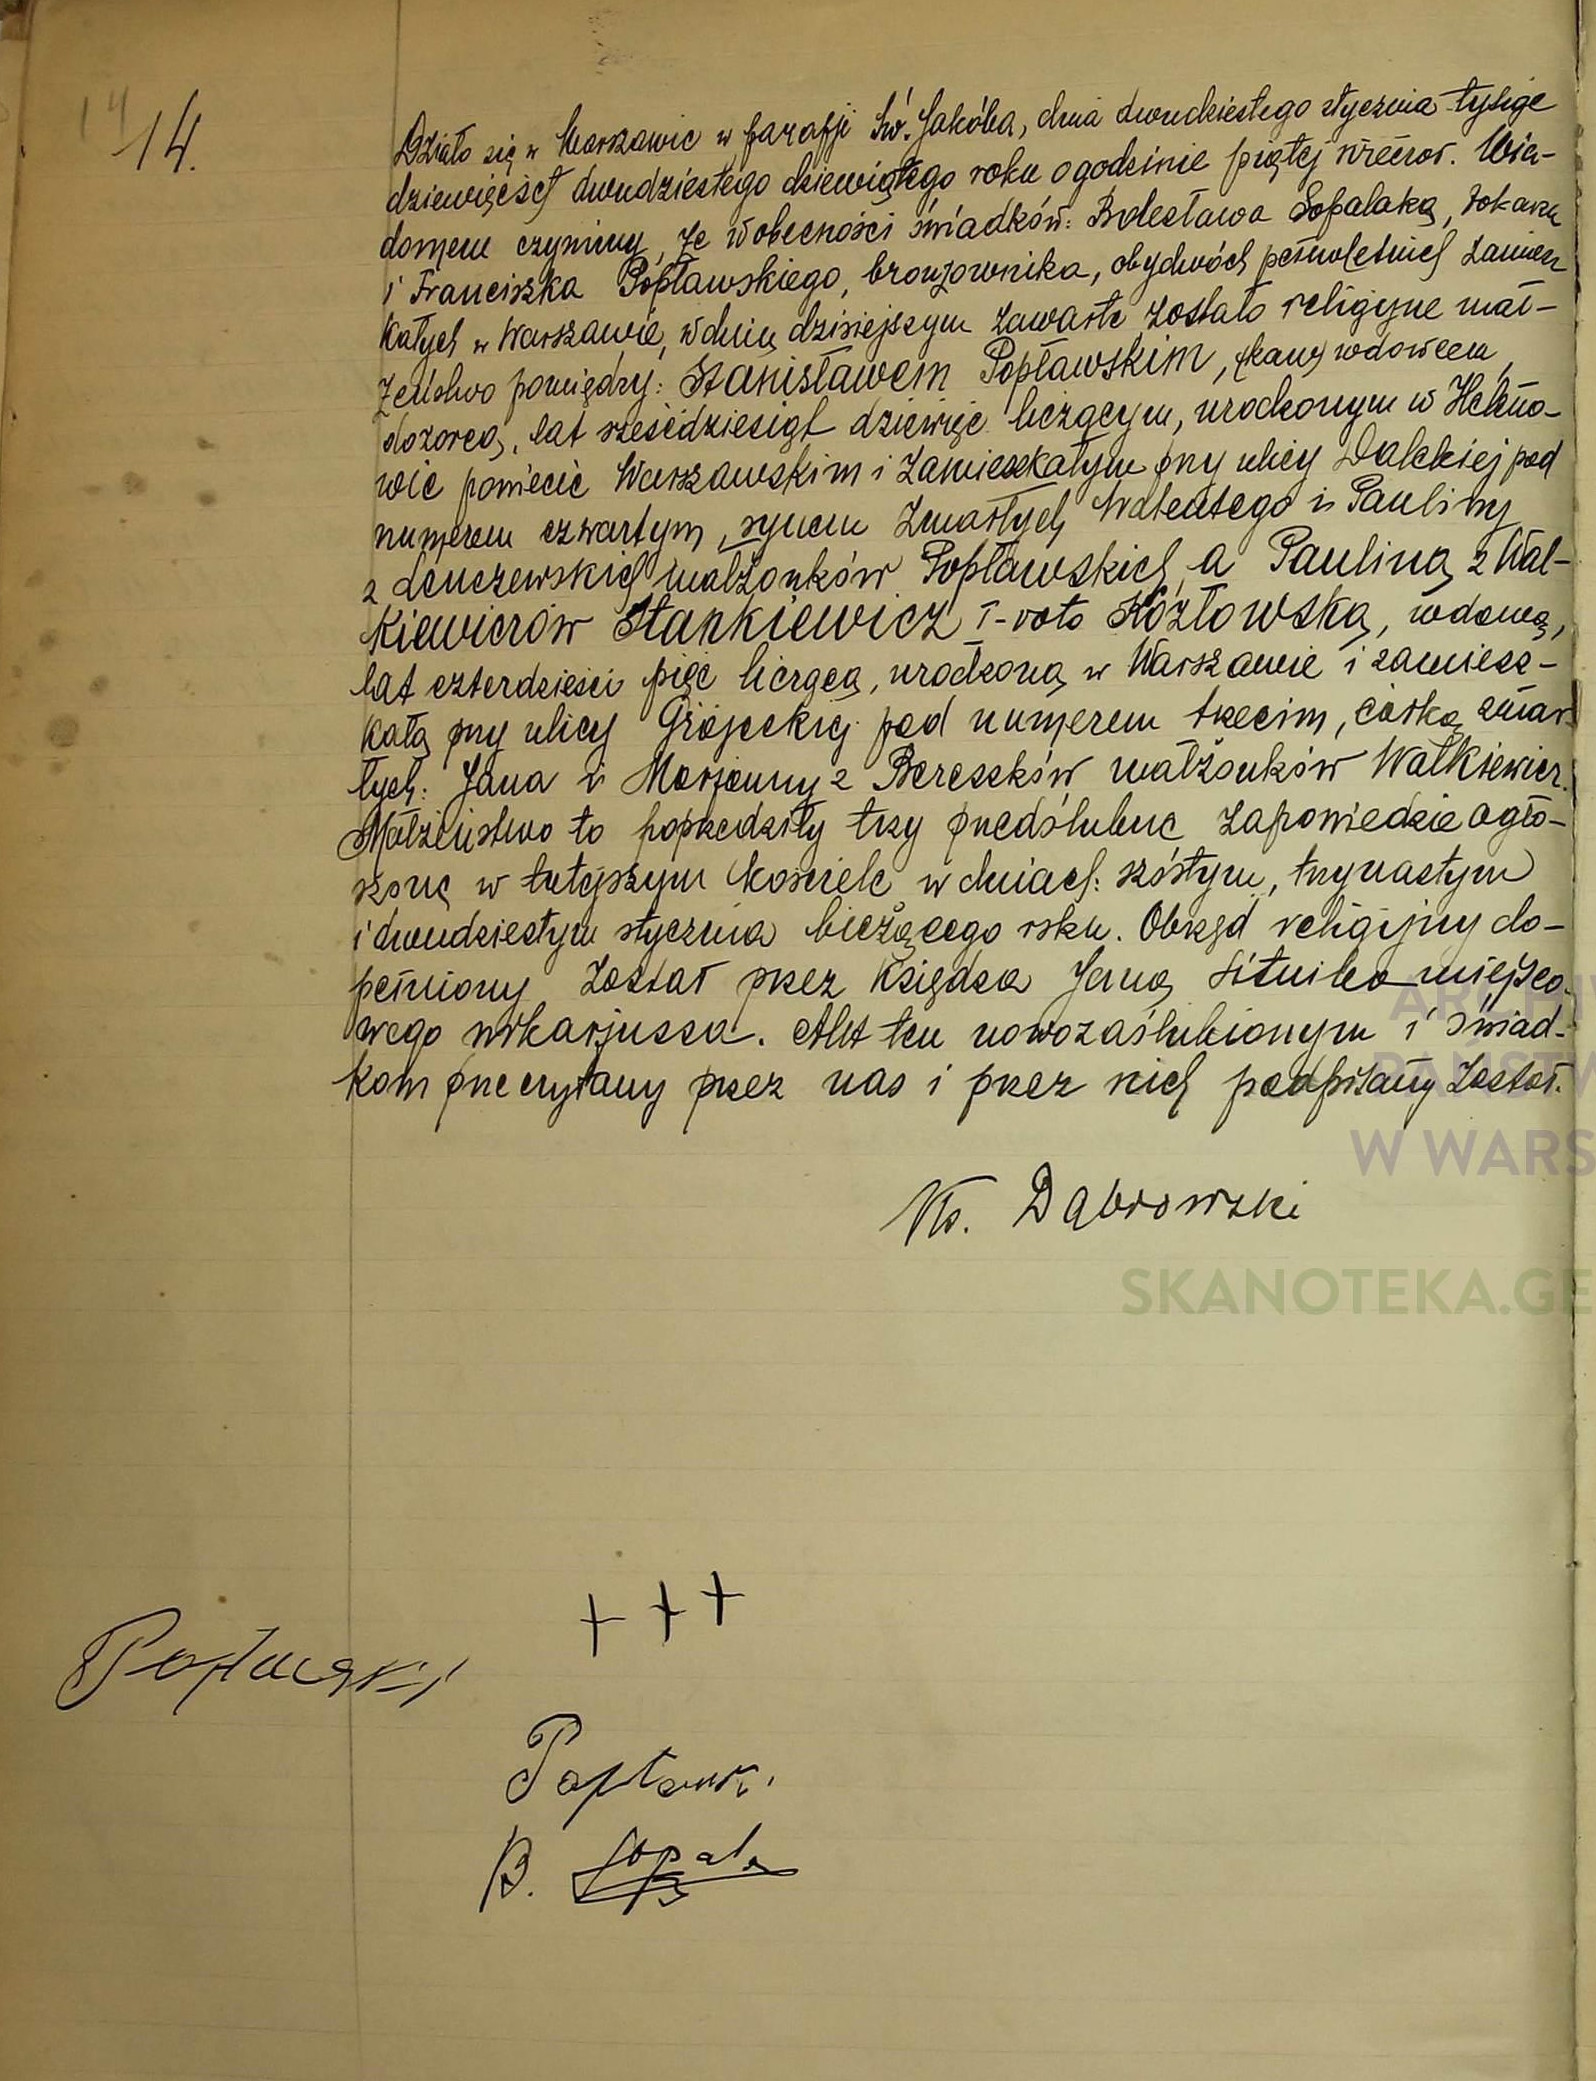 14
14.
Działo się w Warszawie w parafji Św. Jakóba, dnia dwudziestego stycznia tysiąc
dziewięćset dwudziestego dziewiątego roku o godzinie piątej wieczor. Wia-
domem czynimy, że w obecności świadków: Bolesława Sopalaka, tokarza
i Franciszka Popławskiego, bronzownika, obydwóch pełnoletnich zamiesz
kałych w Warszawie, w dniu dzisiejszym zawarte zostało religijne mał-
żeństwo pomiędzy: Stanisławem Popławskim, wdowcem,
dozorcą, lat sześćdziesiąt dziewięć liczącym, urodzonym w Heleno-
wie powiecie Warszawskim i zamieszkałym przy ulicy Dalekiej pod
numerem czwartym, synem zmarłych Walentego i Pauliny
z Lenczewskich małżonków Popławskich, a Pauliną z Wal-
kiewiczów Stankiewicz I-voto Kozłowską, wdową,
lat czterdzieści pięć liczącą, urodzoną w Warszawie i zamiesz-
kałą przy ulicy Grójeckiej pod numerem trzecim, córką zmar
łych: Jana i Marjanny z Bereszków małżonków Walkiewicz.
Małżeństwo to poprzedziły trzy przedślubne zapowiedzie ogło-
szone w tutejszym kościele w dniach: szóstym, trzynastym
i dwudziestym stycznia bieżącego roku. Obrzęd religijny do-
pełniony został przez księdza Jana Sitnika miejsco-
wego wikarjusza. Akt ten nowozaślubionym i świad-
kom przeczytany przez nas i przez nich podpisany został.
ARCHIW
PAŃSTW
W WARS
Dąbrowski
SKANOTEKA.GE
+ + +
Popławski
Popławski
B.